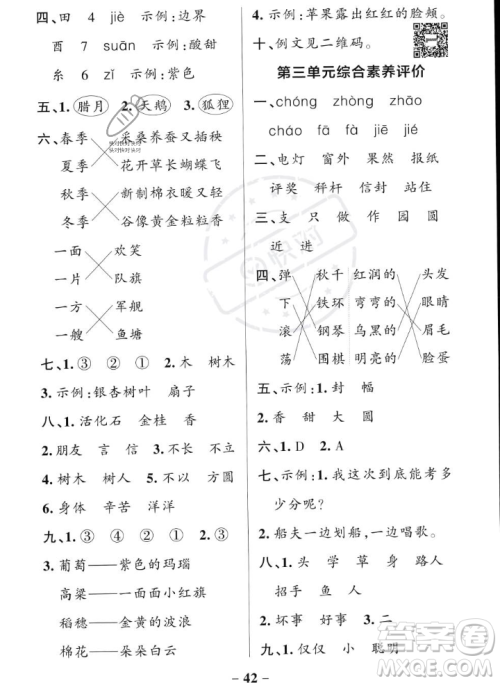 四、田 4 jiè 示例:边界
酉 7 suān 示例:酸甜
糸 6 zǐ 示例:紫色
五、1. 腊月 2. 天鹅 3. 狐狸
六、春季 采桑养蚕又插秧
夏季 花开草长蝴蝶飞
秋季 新制棉衣暖又轻
冬季 谷像黄金粒粒香
一面 欢笑
一片 队旗
一方 军舰
一艘 鱼塘
七、1. ③ ② ① 2. 木 树木
3. 示例:银杏树叶 扇子
八、1. 活化石 金桂 香
2. 朋友 言 信 3. 不长 不立
4. 树木 树人 5. 不以 不 方圆
6. 身体 辛苦 洋洋
九、1. ④ ③ ① ② 2. ①
3. 葡萄——紫色的玛瑙
高粱——一面面小红旗
稻穗——金黄的波浪
棉花——朵朵白云
5. 示例:苹果露出红红的脸颊。
十、例文见二维码。
第三单元综合素养评价
一、chóng zhòng zhāo
cháo fā fà jiē jié
二、电灯 窗外 果然 报纸
评奖 秤杆 信封 站住
三、支 知 做 作 园 圆
近 进
四、弹 秋千 红润的 头发
下 铁环 弯弯的 眼睛
滚 钢琴 乌黑的 眉毛
荡 围棋 明亮的 脸蛋
五、示例:1. 封 幅
2. 香 甜 大 圆
六、1. D 2. A
七、示例:1. 我这次到底能考多
少分呢?
2. 船夫一边划船,一边唱歌。
八、1. 头 学 草 身 路人
招手 鱼儿
2. 坏事 好事 3. 二
九、1. 仅仅 小 聪明
- 42 -
快对
答案圈
MXQE.COM